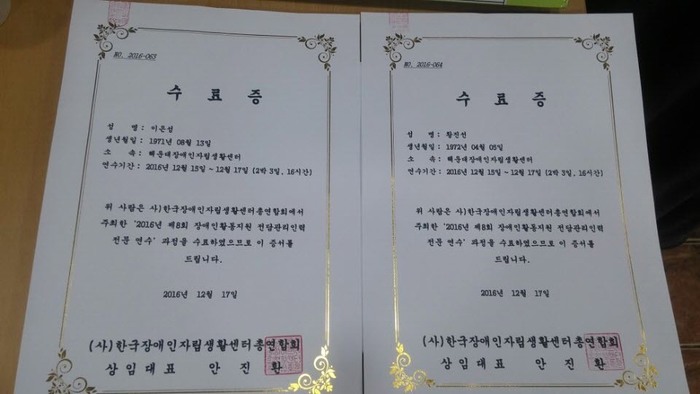 NO. 2016-063
수 료 증
성 명 : 이은성
생년월일 : 1971년 08월 13일
소 속 : 해운대장애인자립생활센터
연수기간 : 2016년 12월 15일 ~ 12월 17일 (2박 3일, 16시간)
위 사람은 사)한국장애인자립생활센터총연합회에서
주최한 '2016년 제8회 장애인활동지원 전담관리인력
전문 연수' 과정을 수료하였으므로 이 증서를
드립니다.
2016년 12월 17일
(사)한국장애인자립생활센터총연합회
상임대표 안 진 환
NO. 2016-064
수 료 증
성 명 : 황진선
생년월일 : 1972년 04월 05일
소 속 : 해운대장애인자립생활센터
연수기간 : 2016년 12월 15일 ~ 12월 17일 (2박 3일, 16시간)
위 사람은 사)한국장애인자립생활센터총연합회에서
주최한 '2016년 제8회 장애인활동지원 전담관리인력
전문 연수' 과정을 수료하였으므로 이 증서를
드립니다.
2016년 12월 17일
(사)한국장애인자립생활센터총연합회
상임대표 안 진 환